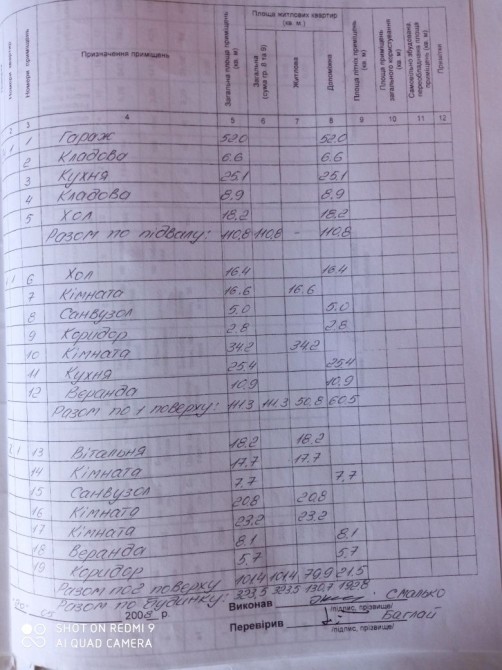 Номери приміщень
Призначення приміщень
Загальна площа приміщень (кв. м)
Площа житлових квартир (кв. м.)
Загальна (сума гр. 8 та 9)
Житлова
Допоміжна
Площа літніх приміщень (кв. м)
Площа приміщень загального користування (кв. м)
Самовільно збудована переобладнана площа приміщень (кв. м)
Примітки
2 3 4 5 6 7 8 9 10 11 12
1 Гараж 52.0 52.0
2 Кладова 6.6 6.6
3 Кухня 25.1 25.1
4 Кладова 8.9 8.9
5 Хол 18.2 18.2
Разом по підвалу: 110,8 110,8 - 110,8
6 Хол 16.4 16.4
7 Кімната 16.6 16.6
8 Санвузол 5.0 5.0
9 Коридор 2.8 2.8
10 Кімната 34.2 34.2
11 Кухня 25.4 25.4
12 Веранда 10.9 10.9
Разом по 1 поверху: 111.3 111.3 50.8 60.5
13 Вітальня 18.2 18.2
14 Кімната 17.7 17.7
15 Санвузол 7.7 7.7
16 Кімната 20.8 20.8
17 Кімната 23.2 23.2
18 Веранда 8.1 8.1
19 Коридор 5.7 5.7
Разом по 2 поверху 101.4 101.4 79.9 21.5
Разом по будинку: 323,5 323,5 130,7 192.8
2008 р. Виконав Смалько
/підпис, прізвище/
Перевірив Баглай
/підпис, прізвище/
SHOT ON REDMI 9
AI QUAD CAMERA